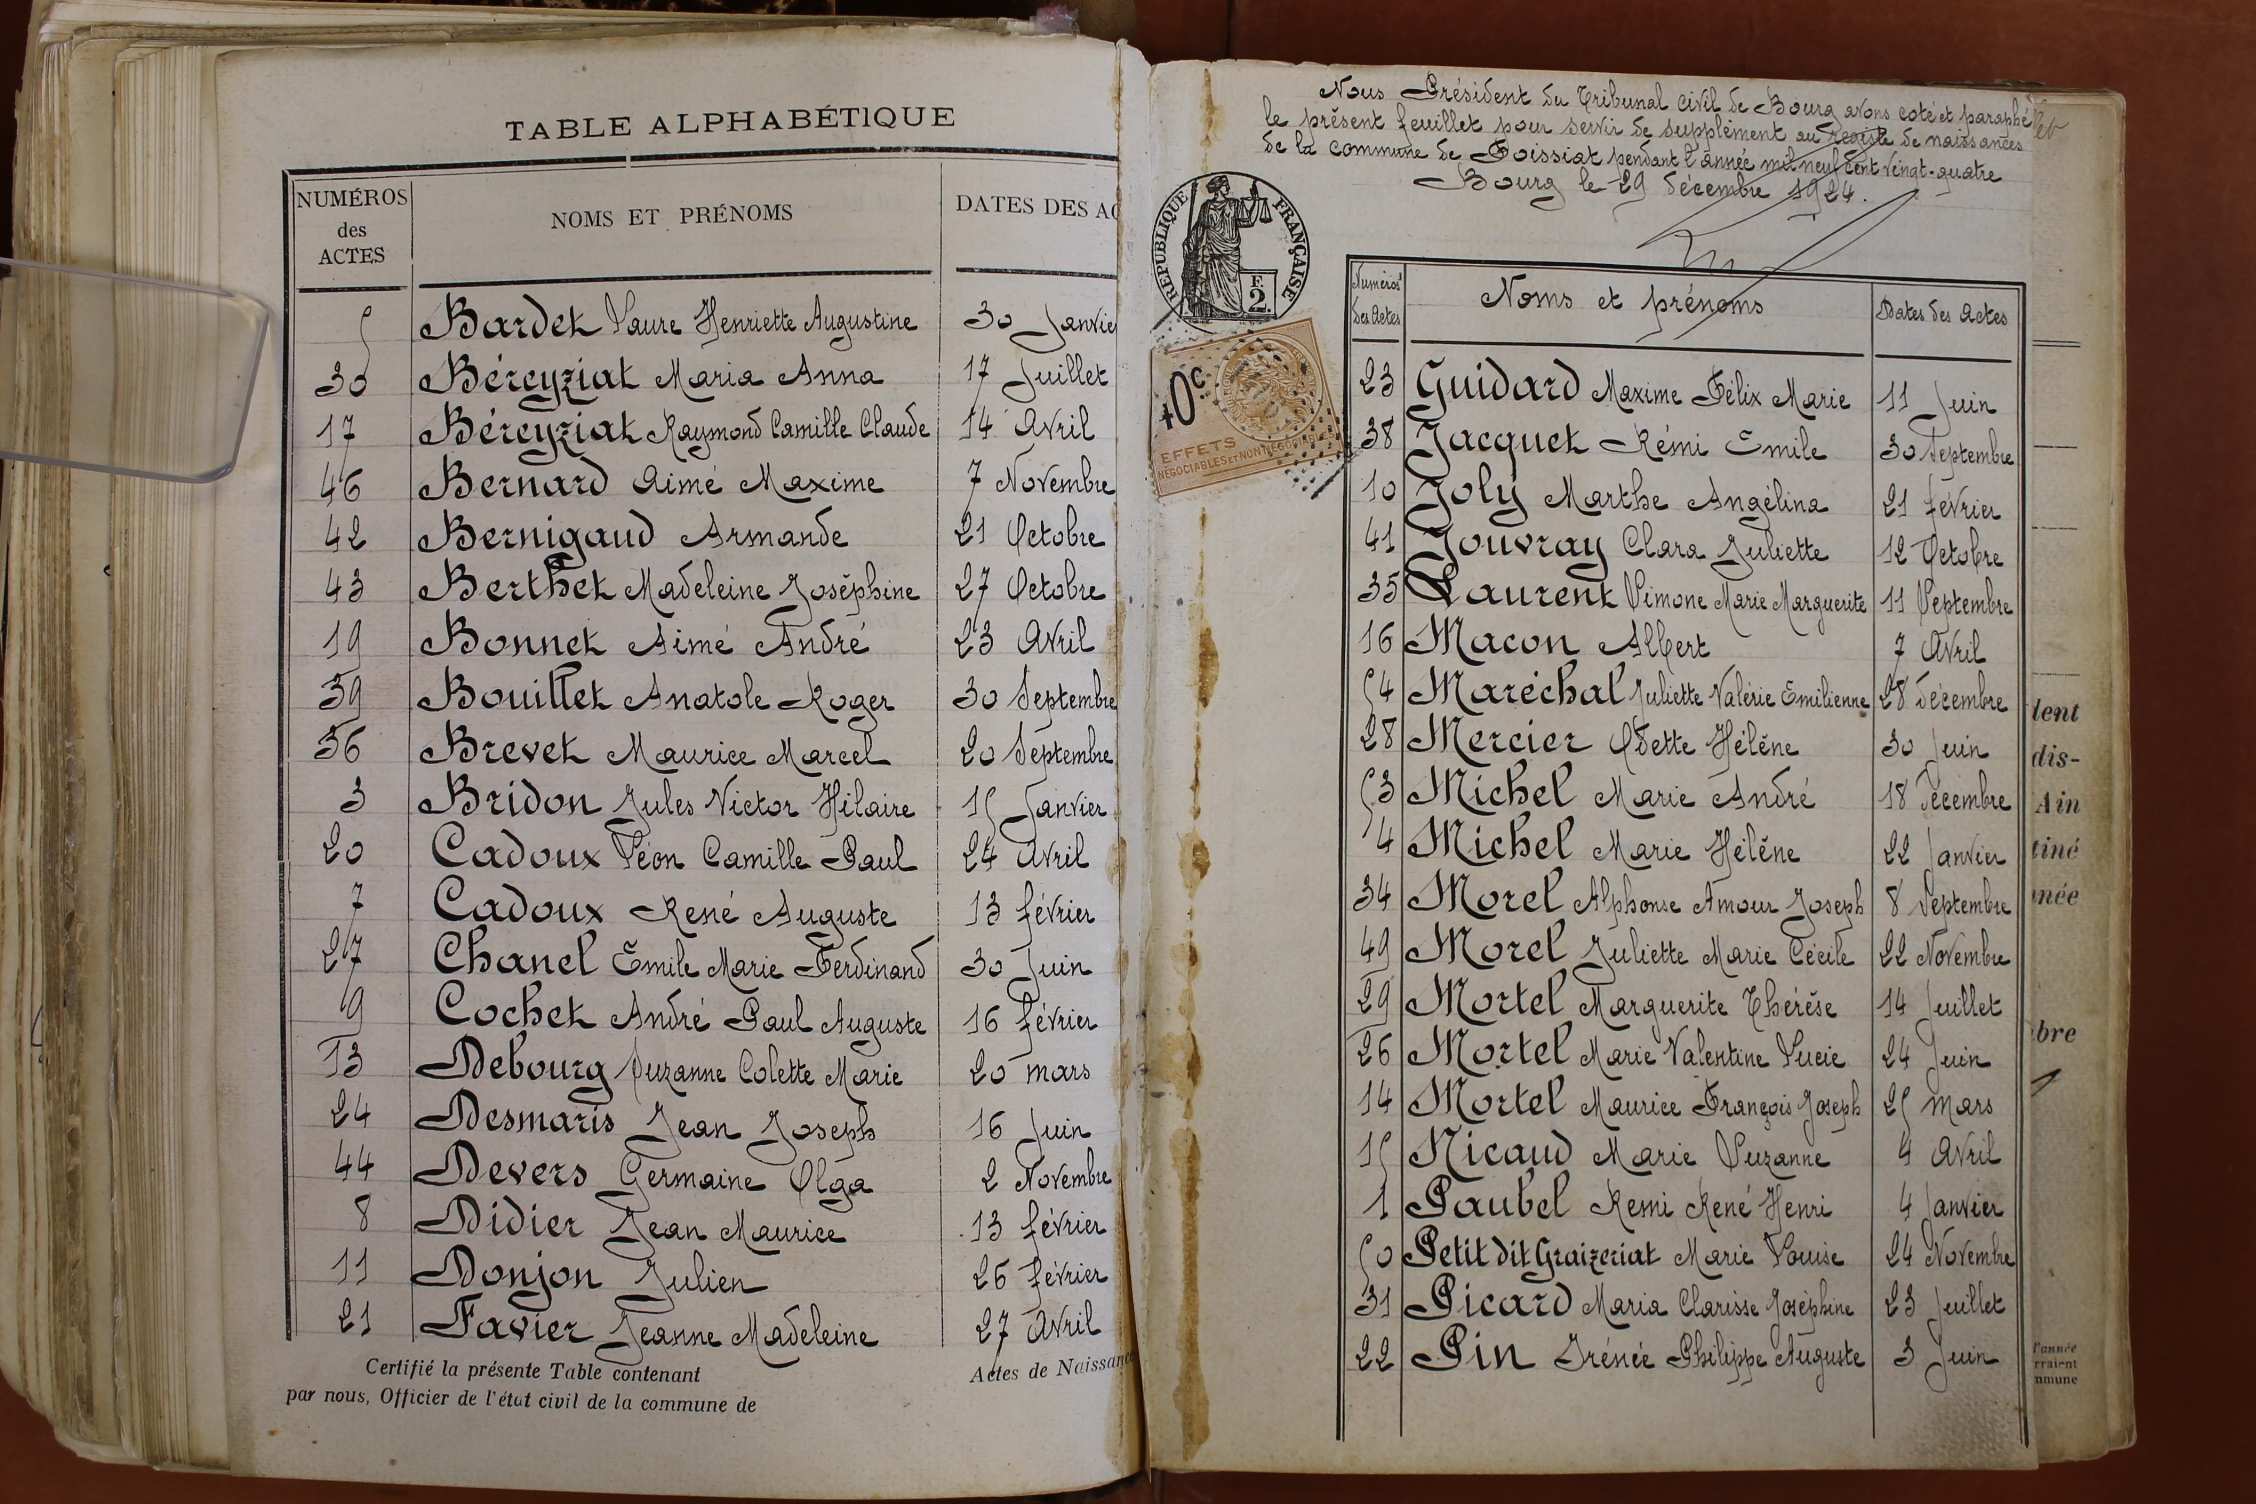 TABLE ALPHABÉTIQUE
NUMÉROS des ACTES NOMS ET PRÉNOMS DATES DES AC
5 Bardet Laure Henriette Augustine 30 Janvie
30 Béreyziat Maria Anna 17 Juillet
17 Béreyziat Raymond Camille Claude 14 Avril
46 Bernard Aimé Maxime 7 Novembre
42 Bernigaud Armande 21 Octobre
43 Berthet Madeleine Joséphine 27 Octobre
19 Bonnet Aimé André 23 Avril
39 Bouillet Anatole Roger 30 Septembre
36 Brevet Maurice Marcel 20 Septembre
3 Bridon Jules Victor Hilaire 15 Janvier
20 Cadoux Léon Camille Paul 24 Avril
7 Cadoux René Auguste 13 février
27 Chanel Emile Marie Ferdinand 30 Juin
9 Cochet André Paul Auguste 16 février
13 Debourg Suzanne Colette Marie 20 mars
24 Desmaris Jean Joseph 16 Juin
44 Devers Germaine Olga 2 Novembre
8 Didier Jean Maurice 13 février
11 Donjon Julien 26 février
21 Favier Jeanne Madeleine 27 Avril
Certifié la présente Table contenant Actes de Naissance
par nous, Officier de l'état civil de la commune de
Nous Président du Tribunal Civil de Bourg avons coté et paraphé
le présent feuillet pour servir de supplément au registe de naissances
de la commune de Foissiat pendant l'année mil neuf cent vingt-quatre
Bourg le 29 décembre 1924.
RÉPUBLIQUE FRANÇAISE
F.
2.
40c
EFFETS
NÉGOCIABLES ET NON NÉGOCIABLES
Numéros des Actes Noms et prénoms Dates des Actes
23 Guidard Maxime Félix Marie 11 Juin
38 Jacquet Rémi Emile 30 Septembre
10 Joly Marthe Angélina 21 février
41 Jouvray Clara Juliette 12 Octobre
35 Laurent Simone Marie Marguerite 11 Septembre
16 Macon Albert 7 Avril
54 Maréchal Juliette Valérie Emilienne 28 décembre
28 Mercier Odette Hélène 30 Juin
53 Michel Marie André 18 décembre
4 Michel Marie Hélène 22 Janvier
34 Morel Alphonse Amour Joseph 8 Septembre
49 Morel Juliette Marie Cécile 22 Novembre
29 Mortel Marguerite Thérèse 14 Juillet
26 Mortel Marie Valentine Lucie 24 Juin
14 Mortel Maurice François Joseph 25 mars
15 Nicaud Marie Suzanne 4 Avril
1 Paubel Remi René Henri 4 Janvier
50 Petit dit Graizeriat Marie Louise 24 Novembre
31 Picard Maria Clarisse Joséphine 23 Juillet
22 Pin Irénée Philippe Auguste 3 Juin
dent
dis-
Ain
tiné
née
bre
l'année
rraient
mmune